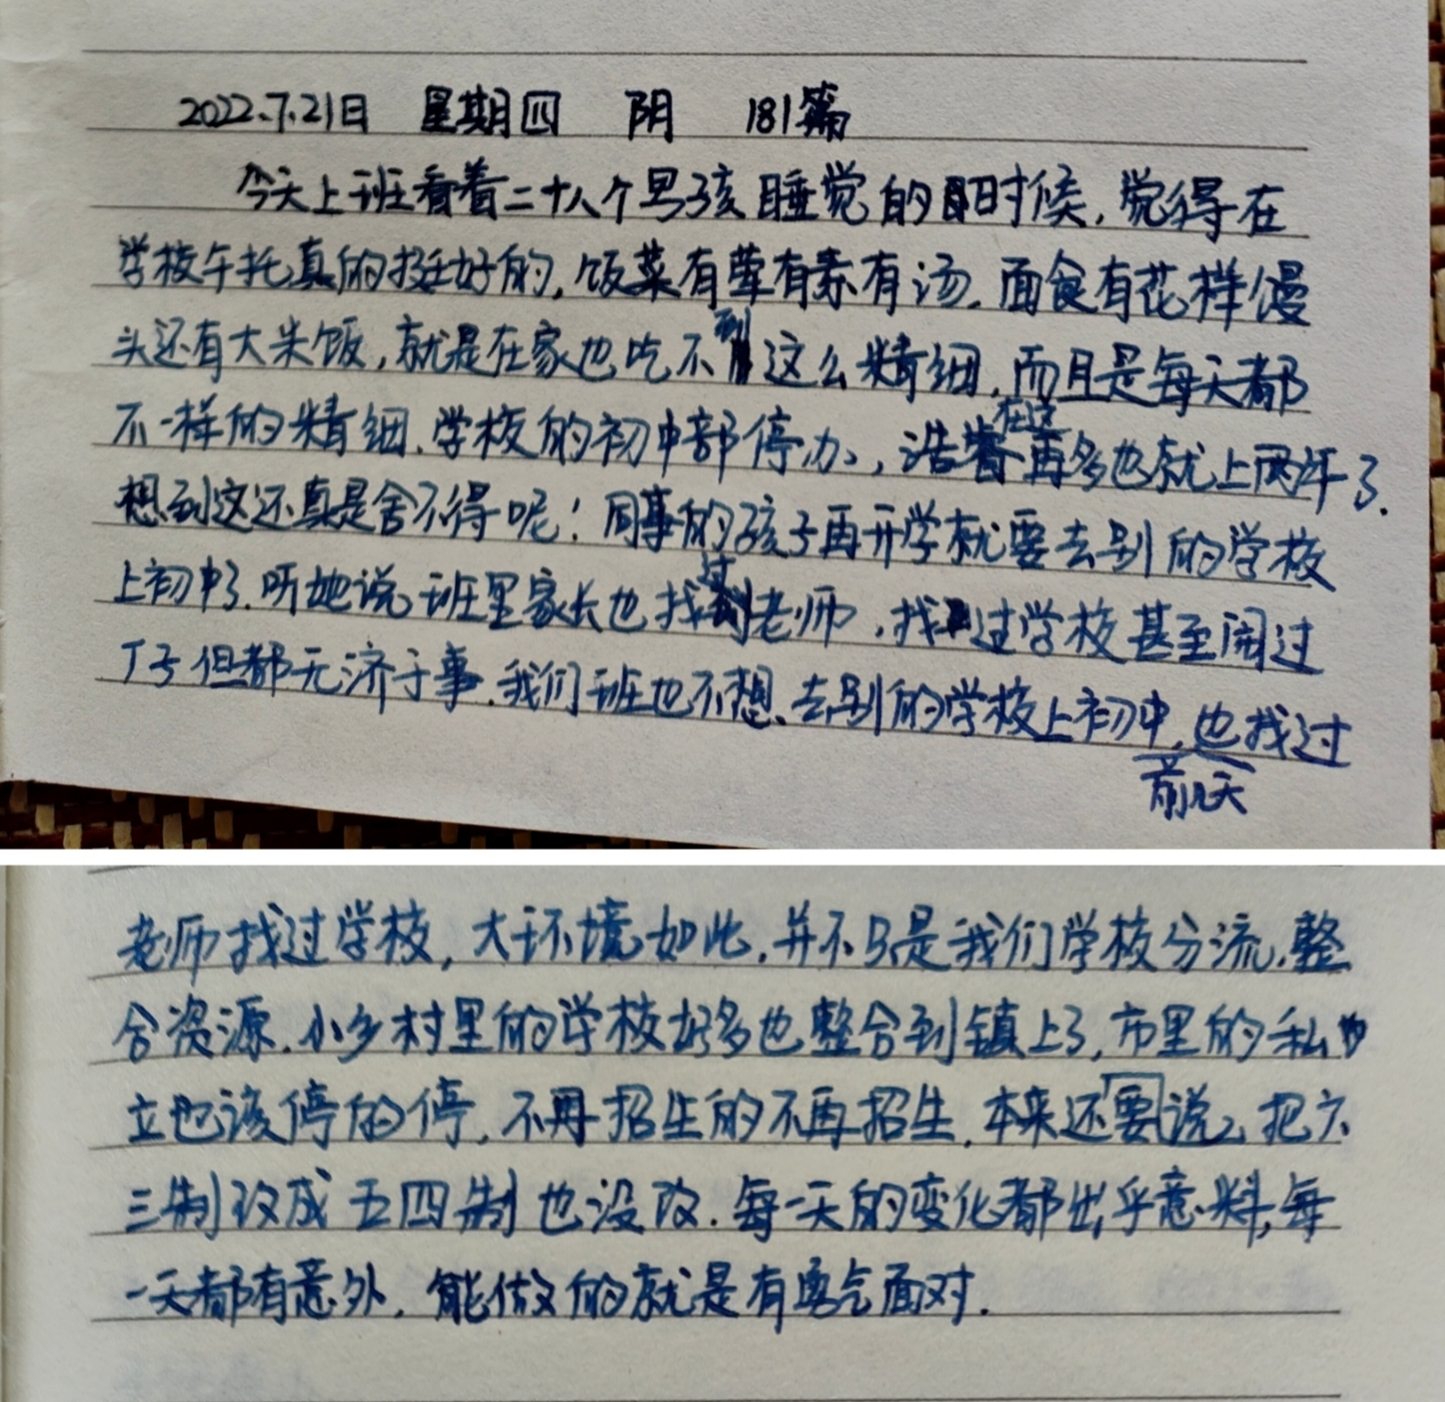 2022.7.21日 星期四 阴 181篇
今天上班看着二十八个男孩睡觉的时候，觉得在
学校午托真的挺好的，饭菜有荤有素有汤，面食有花样馒
头还有大米饭，就是在家也吃不到这么精细，而且是每天都
不一样的精细，学校的初中部停办，浩睿在这再多也就上两年了，
想到这还真是舍不得呢！同事的孩子再开学就要去别的学校
上初中了，听她说班里家长也找过老师，找过学校甚至闹过
了了但都无济于事，我们班也不想去别的学校上初中，前几天也找过
老师找过学校，大环境如此，并不只是我们学校分流，整
合资源，小乡村里的学校好多也整合到镇上了，市里的私
立也该停的停，不再招生的不再招生，本来还要说把六
三制改成五四制也没改。每一天的变化都出乎意料，每
一天都有意外，能做的就是有勇气面对。